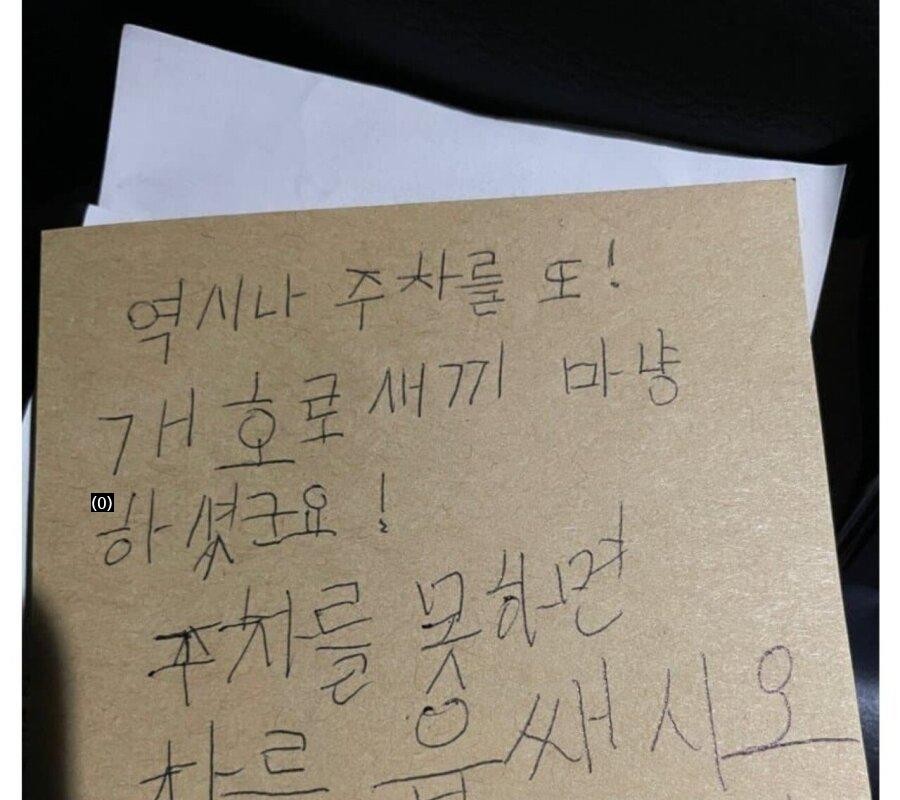 역시나 주차를 또!
개호로새끼 마냥
(0)
하셧군요!
주차를 못하면
쌔시오